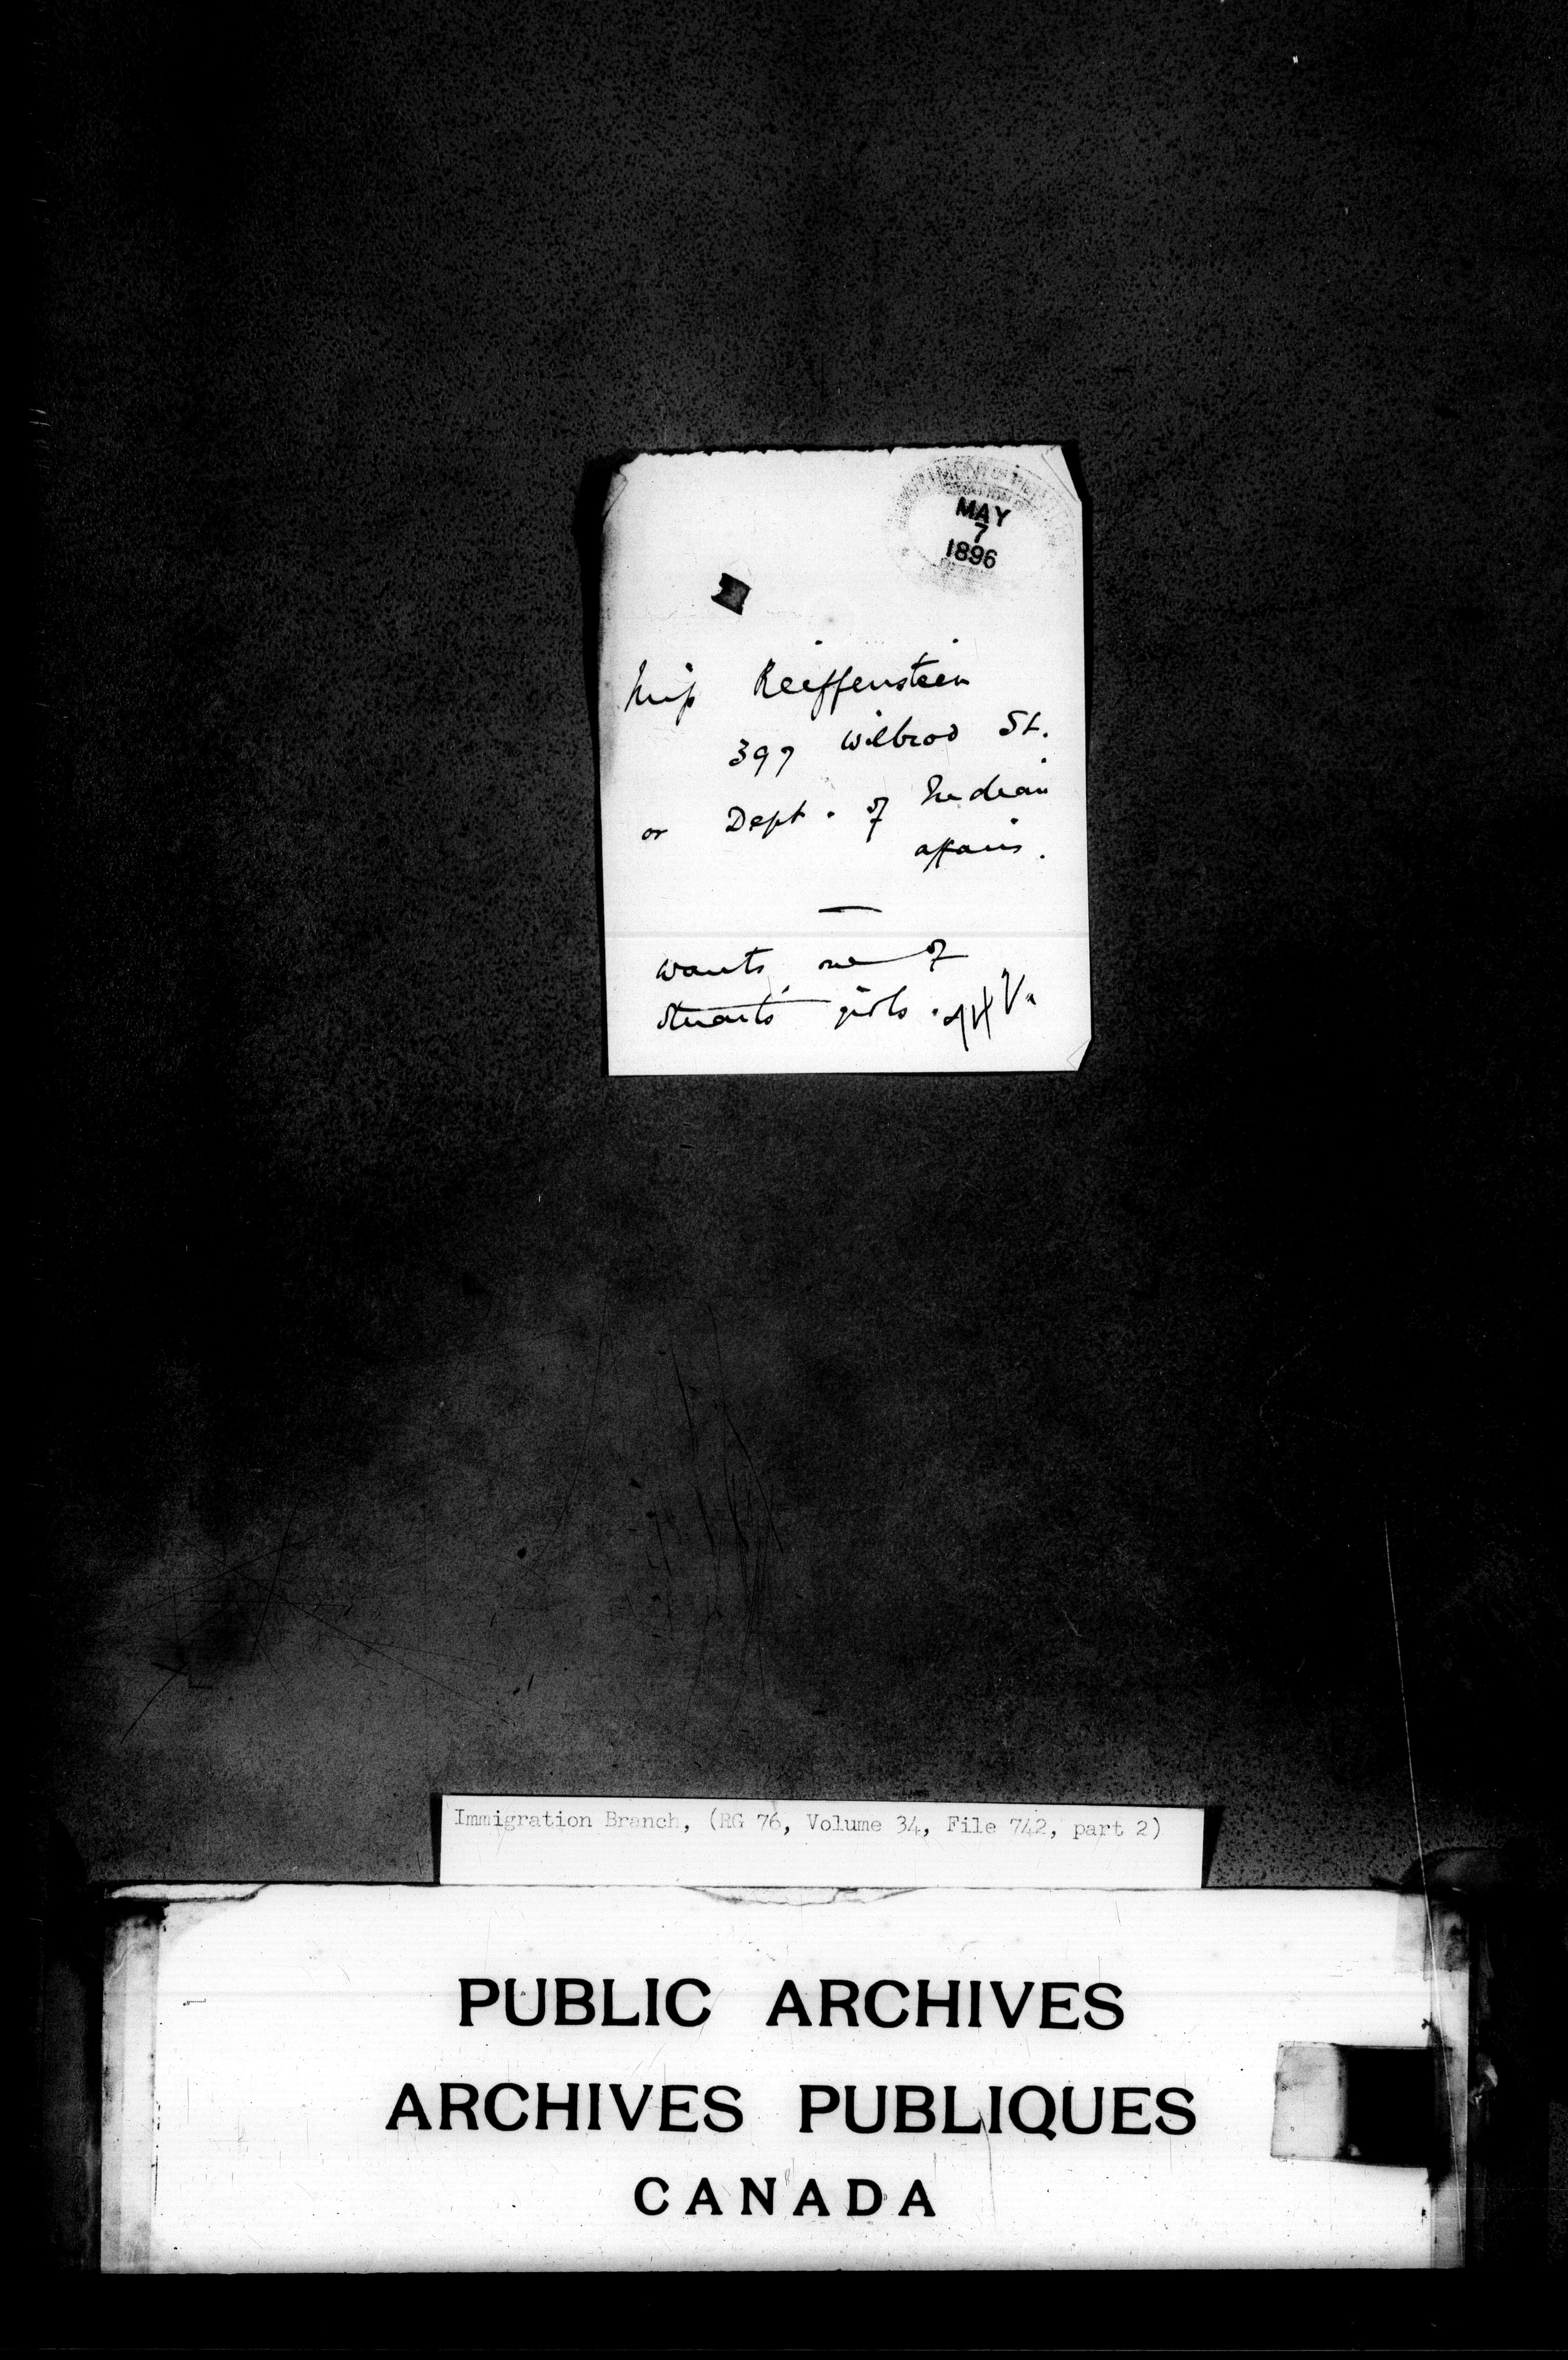 MAY
7
1896
Miss Reiffenstein
397 Wilbrod St.
or Dept. of Indian
affairs.
wants one of
Stuarts' girls.
Immigration Branch, (RG 76, Volume 34, File 742, part 2)
PUBLIC ARCHIVES
ARCHIVES PUBLIQUES
CANADA